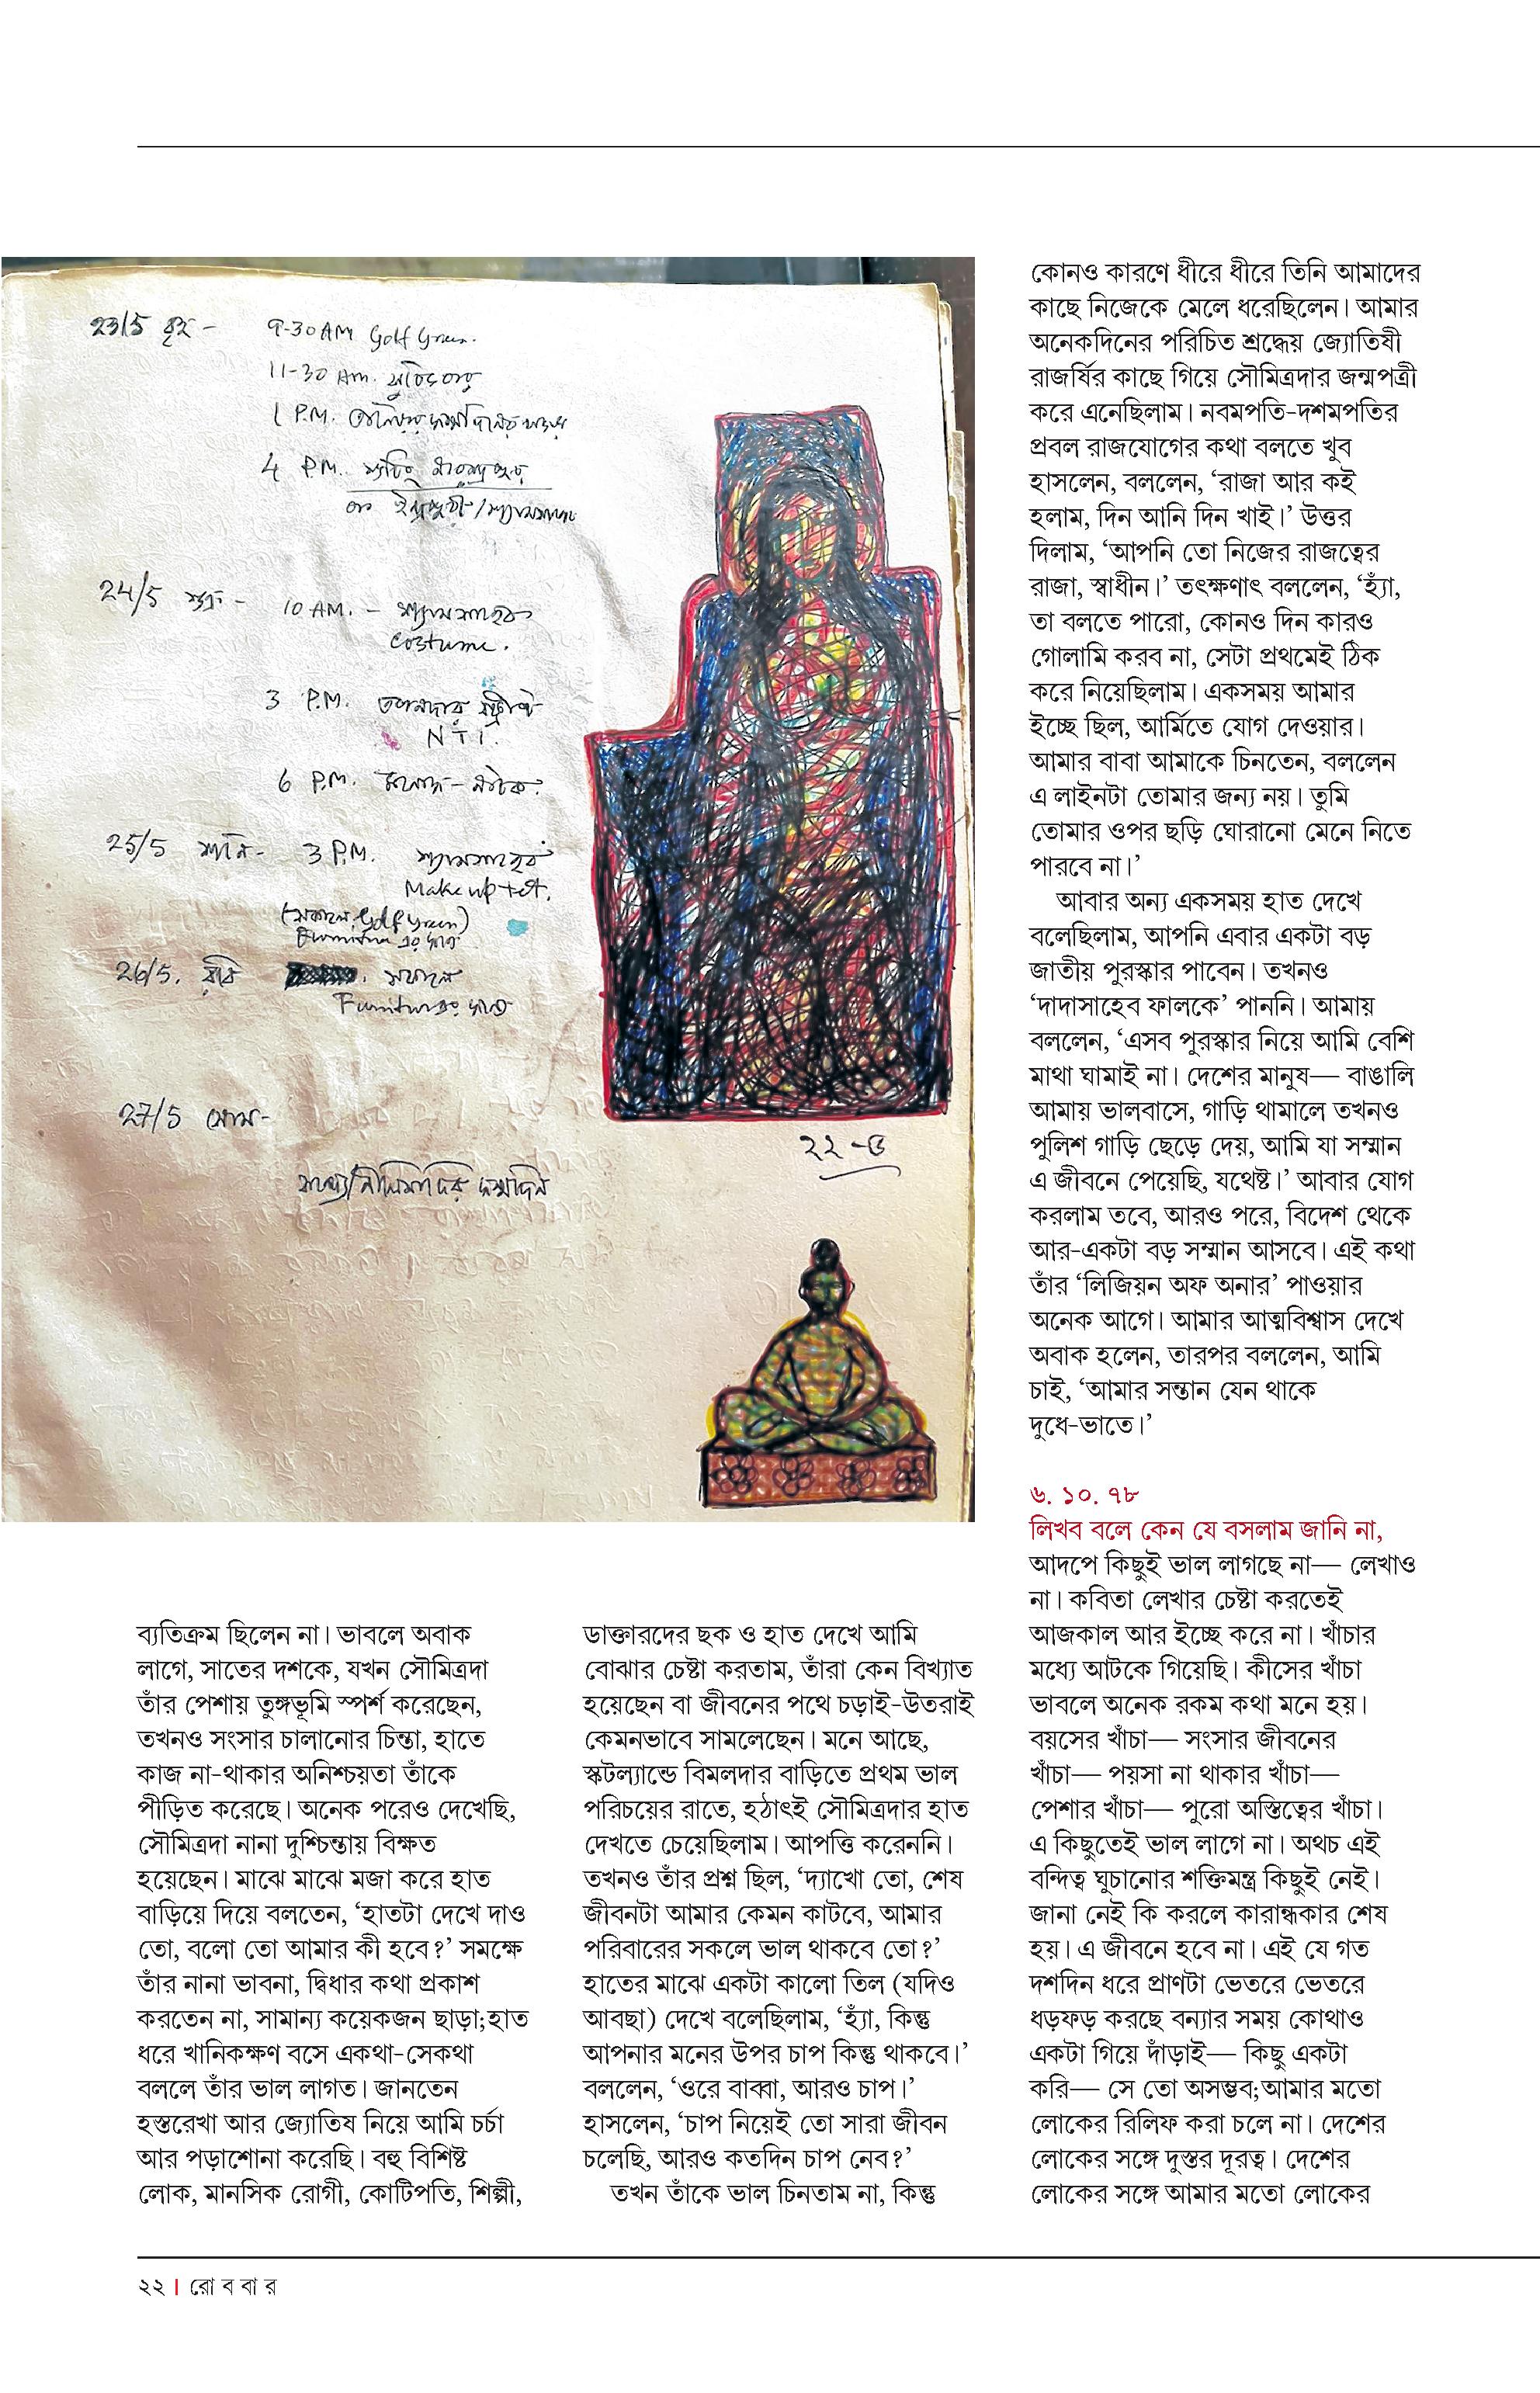 23/5 বৃহ - 9-30 AM Golf Green.
11-30 AM.
1 P.M.
4 P.M.
24/5 শুক্র - 10 AM. -
costume.
3 P.M.
NTI.
6 P.M.
25/5 শনি - 3 P.M.
Make up test.
(সকালে Golf Green)
26/5. রবি সকালে
27/5 সোম -
২২-৫
ব্যতিক্রম ছিলেন না। ভাবলে অবাক
লাগে, সাতের দশকে, যখন সৌমিত্রদা
তাঁর পেশায় তুঙ্গভূমি স্পর্শ করেছেন,
তখনও সংসার চালানোর চিন্তা, হাতে
কাজ না-থাকার অনিশ্চয়তা তাঁকে
পীড়িত করেছে। অনেক পরেও দেখেছি,
সৌমিত্রদা নানা দুশ্চিন্তায় বিক্ষত
হয়েছেন। মাঝে মাঝে মজা করে হাত
বাড়িয়ে দিয়ে বলতেন, ‘হাতটা দেখে দাও
তো, বলো তো আমার কী হবে?’ সমক্ষে
তাঁর নানা ভাবনা, দ্বিধার কথা প্রকাশ
করতেন না, সামান্য কয়েকজন ছাড়া;হাত
ধরে খানিকক্ষণ বসে একথা-সেকথা
বললে তাঁর ভাল লাগত। জানতেন
হস্তরেখা আর জ্যোতিষ নিয়ে আমি চর্চা
আর পড়াশোনা করেছি। বহু বিশিষ্ট
লোক, মানসিক রোগী, কোটিপতি, শিল্পী,
ডাক্তারদের ছক ও হাত দেখে আমি
বোঝার চেষ্টা করতাম, তাঁরা কেন বিখ্যাত
হয়েছেন বা জীবনের পথে চড়াই-উতরাই
কেমনভাবে সামলেছেন। মনে আছে,
স্কটল্যান্ডে বিমলদার বাড়িতে প্রথম ভাল
পরিচয়ের রাতে, হঠাৎই সৌমিত্রদার হাত
দেখতে চেয়েছিলাম। আপত্তি করেননি।
তখনও তাঁর প্রশ্ন ছিল, ‘দ্যাখো তো, শেষ
জীবনটা আমার কেমন কাটবে, আমার
পরিবারের সকলে ভাল থাকবে তো?’
হাতের মাঝে একটা কালো তিল (যদিও
আবছা) দেখে বলেছিলাম, ‘হ্যাঁ, কিন্তু
আপনার মনের উপর চাপ কিন্তু থাকবে।’
বললেন, ‘ওরে বাব্বা, আরও চাপ।’
হাসলেন, ‘চাপ নিয়েই তো সারা জীবন
চলেছি, আরও কতদিন চাপ নেব?’
তখন তাঁকে ভাল চিনতাম না, কিন্তু
কোনও কারণে ধীরে ধীরে তিনি আমাদের
কাছে নিজেকে মেলে ধরেছিলেন। আমার
অনেকদিনের পরিচিত শ্রদ্ধেয় জ্যোতিষী
রাজর্ষির কাছে গিয়ে সৌমিত্রদার জন্মপত্রী
করে এনেছিলাম। নবমপতি-দশমপতির
প্রবল রাজযোগের কথা বলতে খুব
হাসলেন, বললেন, ‘রাজা আর কই
হলাম, দিন আনি দিন খাই।’ উত্তর
দিলাম, ‘আপনি তো নিজের রাজত্বের
রাজা, স্বাধীন।’ তৎক্ষণাৎ বললেন, ‘হ্যাঁ,
তা বলতে পারো, কোনও দিন কারও
গোলামি করব না, সেটা প্রথমেই ঠিক
করে নিয়েছিলাম। একসময় আমার
ইচ্ছে ছিল, আর্মিতে যোগ দেওয়ার।
আমার বাবা আমাকে চিনতেন, বললেন
এ লাইনটা তোমার জন্য নয়। তুমি
তোমার ওপর ছড়ি ঘোরানো মেনে নিতে
পারবে না।’
আবার অন্য একসময় হাত দেখে
বলেছিলাম, আপনি এবার একটা বড়
জাতীয় পুরস্কার পাবেন। তখনও
‘দাদাসাহেব ফালকে’ পাননি। আমায়
বললেন, ‘এসব পুরস্কার নিয়ে আমি বেশি
মাথা ঘামাই না। দেশের মানুষ— বাঙালি
আমায় ভালবাসে, গাড়ি থামালে তখনও
পুলিশ গাড়ি ছেড়ে দেয়, আমি যা সম্মান
এ জীবনে পেয়েছি, যথেষ্ট।’ আবার যোগ
করলাম তবে, আরও পরে, বিদেশ থেকে
আর-একটা বড় সম্মান আসবে। এই কথা
তাঁর ‘লিজিয়ন অফ অনার’ পাওয়ার
অনেক আগে। আমার আত্মবিশ্বাস দেখে
অবাক হলেন, তারপর বললেন, আমি
চাই, ‘আমার সন্তান যেন থাকে
দুধে-ভাতে।’
৬. ১০. ৭৮
লিখব বলে কেন যে বসলাম জানি না,
আদপে কিছুই ভাল লাগছে না— লেখাও
না। কবিতা লেখার চেষ্টা করতেই
আজকাল আর ইচ্ছে করে না। খাঁচার
মধ্যে আটকে গিয়েছি। কীসের খাঁচা
ভাবলে অনেক রকম কথা মনে হয়।
বয়সের খাঁচা— সংসার জীবনের
খাঁচা— পয়সা না থাকার খাঁচা—
পেশার খাঁচা— পুরো অস্তিত্বের খাঁচা।
এ কিছুতেই ভাল লাগে না। অথচ এই
বন্দিত্ব ঘুচানোর শক্তিমন্ত্র কিছুই নেই।
জানা নেই কি করলে কারান্ধকার শেষ
হয়। এ জীবনে হবে না। এই যে গত
দশদিন ধরে প্রাণটা ভেতরে ভেতরে
ধড়ফড় করছে বন্যার সময় কোথাও
একটা গিয়ে দাঁড়াই— কিছু একটা
করি— সে তো অসম্ভব;আমার মতো
লোকের রিলিফ করা চলে না। দেশের
লোকের সঙ্গে দুস্তর দূরত্ব। দেশের
লোকের সঙ্গে আমার মতো লোকের
২২ | রো ব বা র